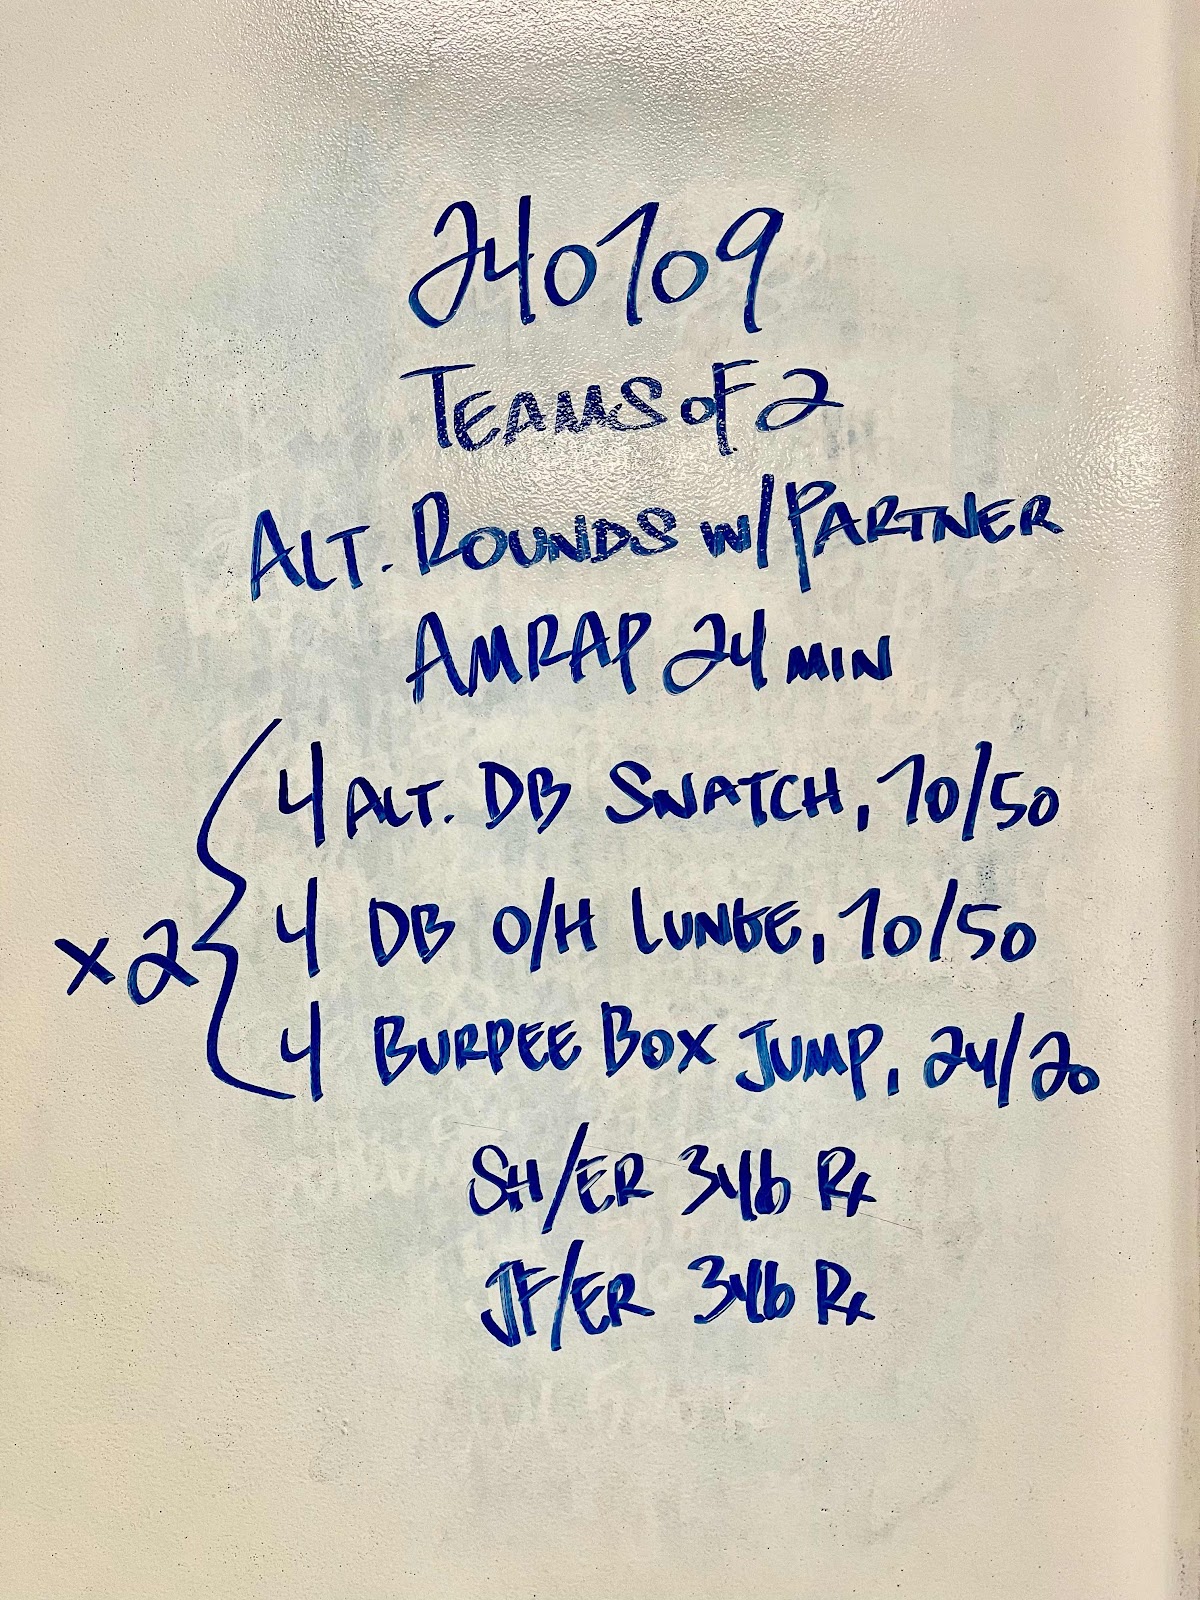 240709
TEAMS OF 2
ALT. ROUNDS W/PARTNER
AMRAP 24 MIN
4 ALT. DB SNATCH, 70/50
4 DB O/H LUNGE, 70/50
x2
4 BURPEE BOX JUMP, 24/20
SH/ER 346 Rx
JF/ER 346 Rx